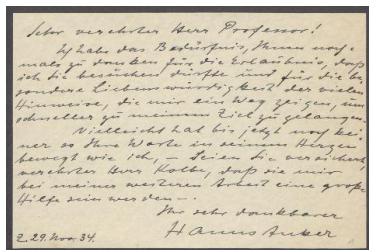 Sehr verehrter Herr Professor!
Ich habe das Bedürfnis, Ihnen noch-
mals zu danken für die Erlaubnis, daß
ich Sie besuchen durfte und für die be-
sondere Liebenswürdigkeit der vielen
Hinweise, die mir ein Weg zeigen, um
schneller zu meinem Ziel zu gelangen.
Vielleicht hat bis jetzt noch kei-
ner so Ihre Worte in seinem Herzen
bewegt wie ich, – Seien Sie versichert,
verehrter Herr Kolbe, daß sie mir
bei meiner weiteren Arbeit eine große
Hilfe sein werden –.
Ihr sehr dankbarer
Hanns Anker
Z. 29. Nov. 34.